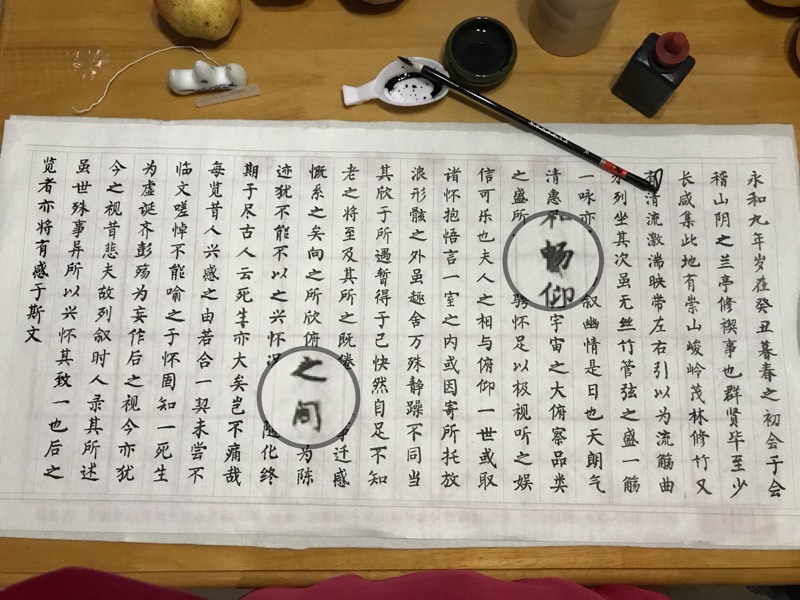 永和九年岁在癸丑暮春之初会于会
稽山阴之兰亭修禊事也群贤毕至少
长咸集此地有崇山峻岭茂林修竹又
清流激湍映带左右引以为流觞曲
列坐其次虽无丝竹管弦之盛一觞
一咏亦叙幽情是日也天朗气
清惠畅仰宇宙之大俯察品类
之盛所骋怀足以极视听之娱
信可乐也夫人之相与俯仰一世或取
诸怀抱悟言一室之内或因寄所托放
浪形骸之外虽趣舍万殊静躁不同当
其欣于所遇暂得于己快然自足不知
老之将至及其所之既倦迁感
慨系之矣向之所欣俯之间为陈
迹犹不能不以之兴怀况随化终
期于尽古人云死生亦大矣岂不痛哉
每览昔人兴感之由若合一契未尝不
临文嗟悼不能喻之于怀固知一死生
为虚诞齐彭殇为妄作后之视今亦犹
今之视昔悲夫故列叙时人录其所述
虽世殊事异所以兴怀其致一也后之
览者亦将有感于斯文